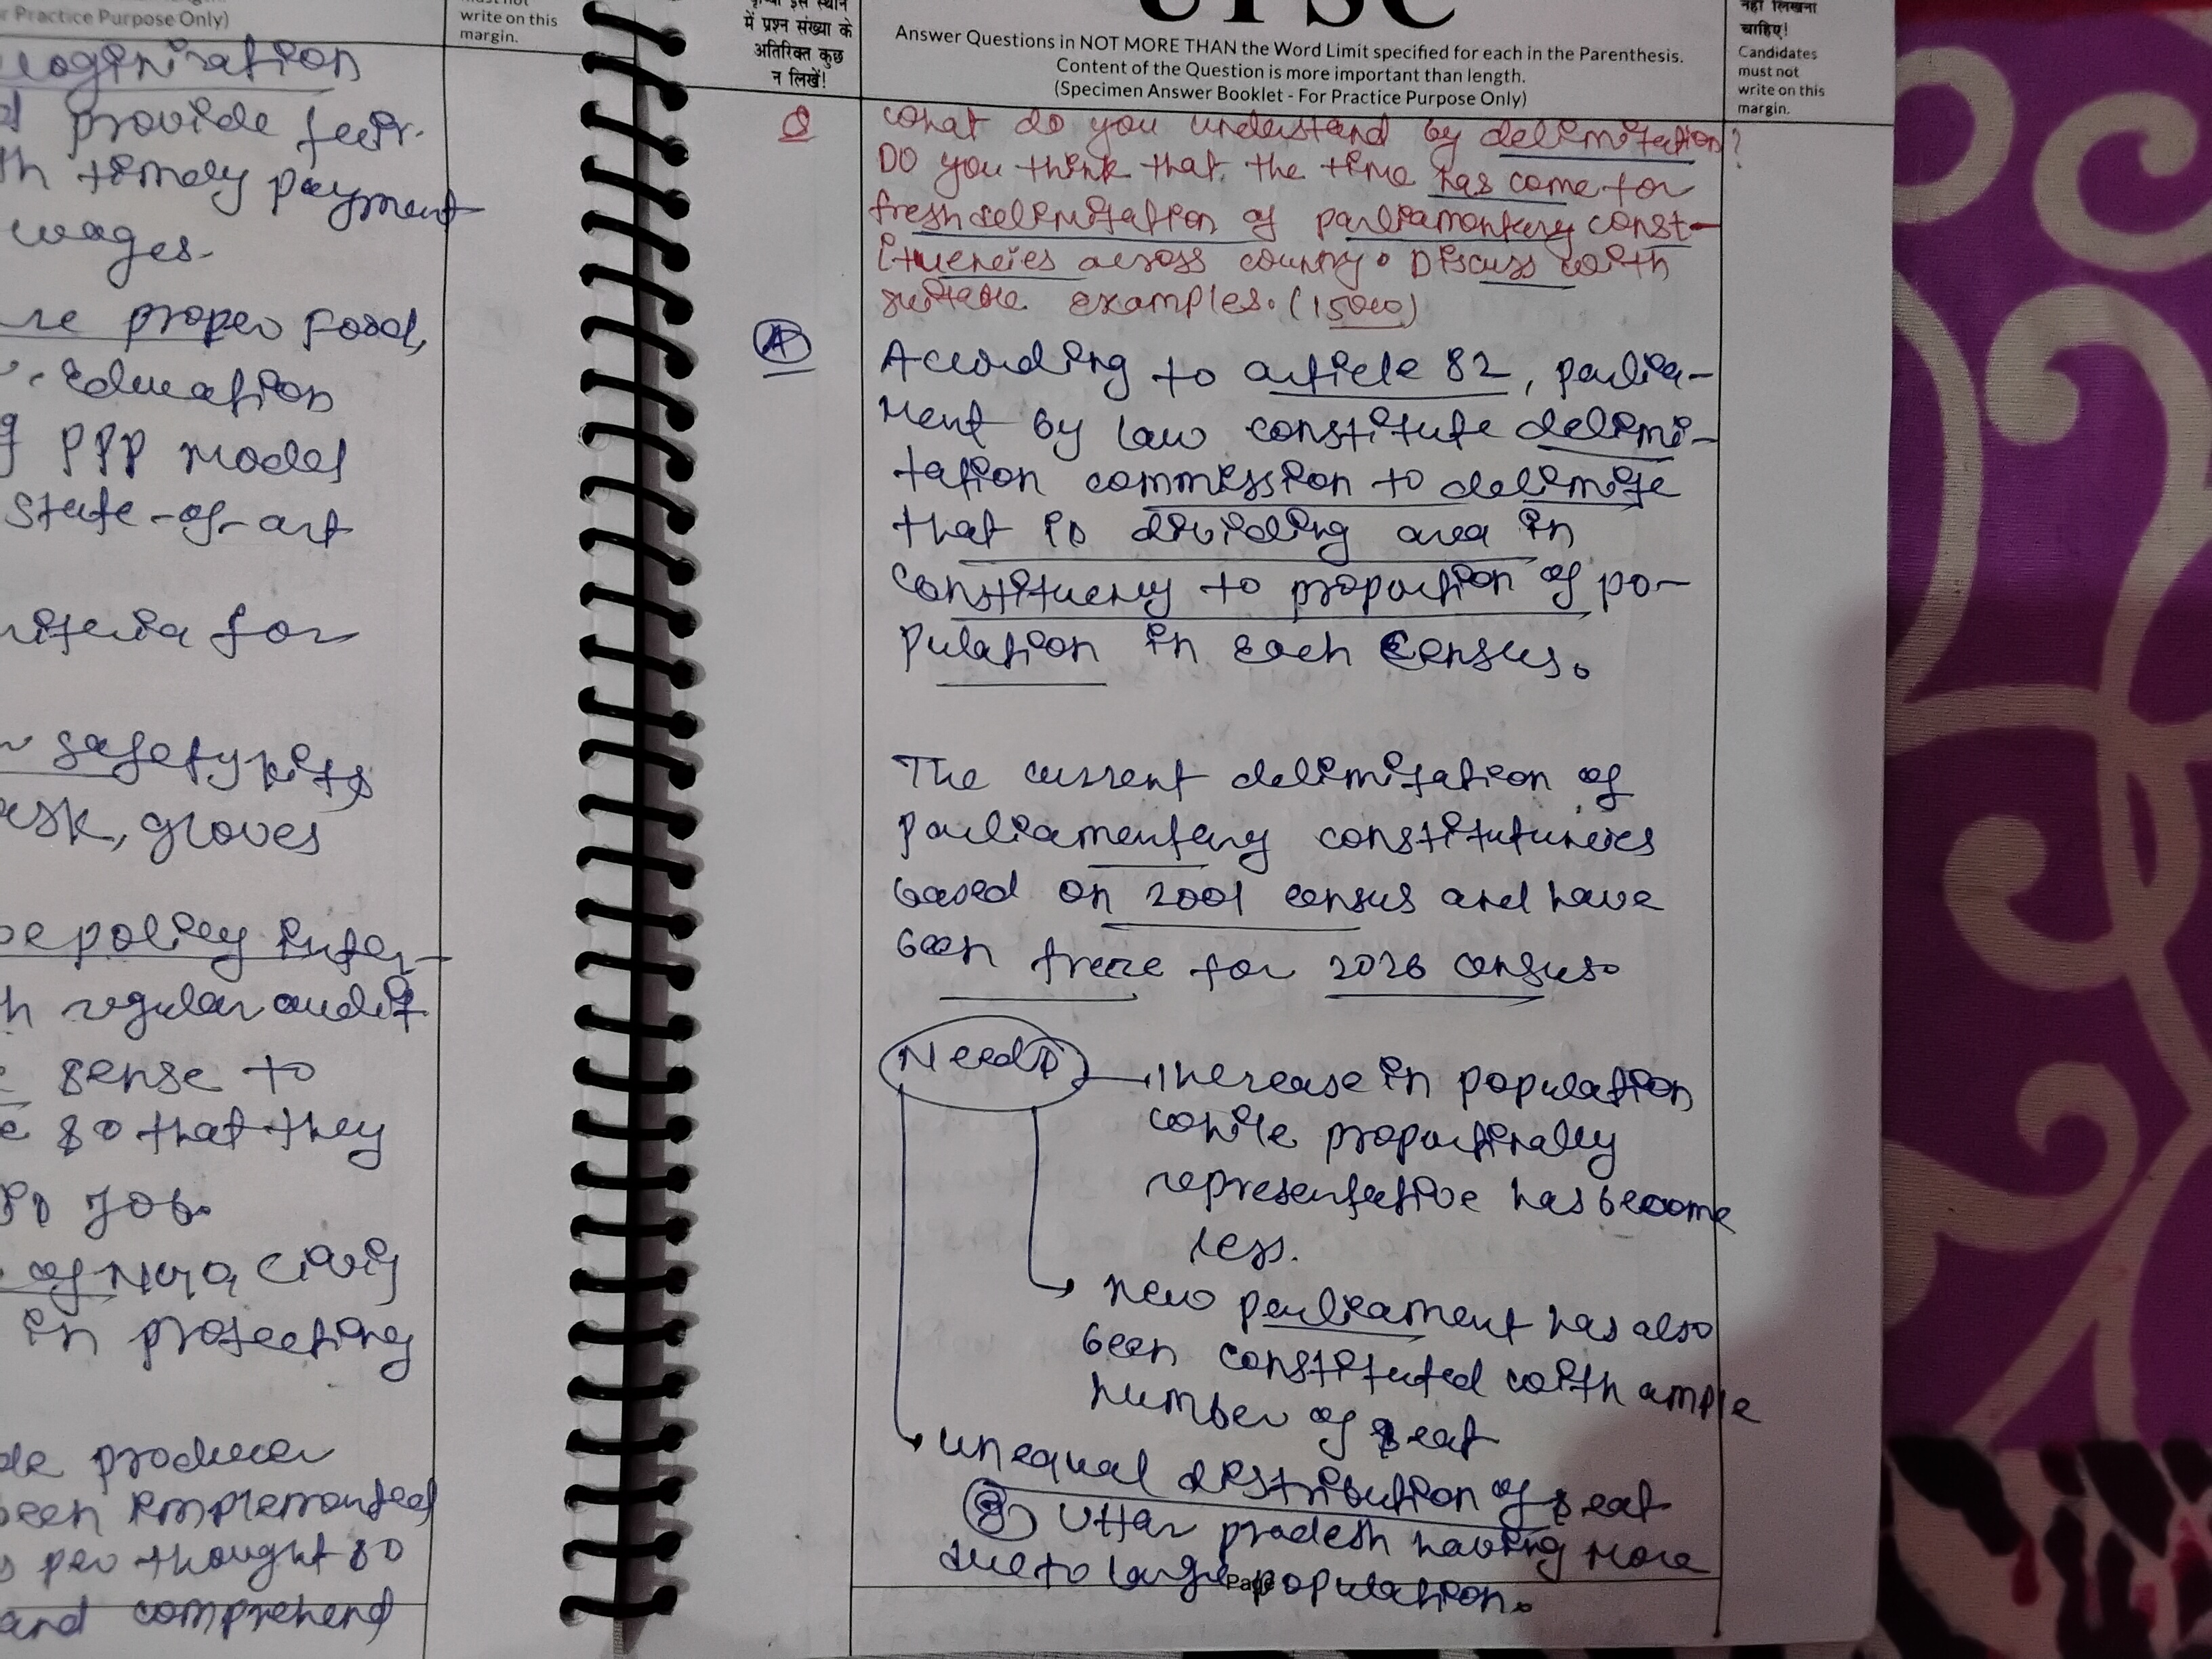 r Practice Purpose Only)
write on this
margin.
provide fair
th timely payment
wages.
re proper food,
Education
g PPP model
State-of-art
riteria for
safety kits
ask, gloves
be policy inter-
h regular audit
sense to
e so that they
is job.
of Nyq, Civig
in protecting
de producer
been implemented
s per thought so
and comprehend
में प्रश्न संख्या के
अतिरिक्त कुछ
न लिखें!
UPSC
Answer Questions in NOT MORE THAN the Word Limit specified for each in the Parenthesis.
Content of the Question is more important than length.
(Specimen Answer Booklet - For Practice Purpose Only)
नहीं लिखना
चाहिए!
Candidates
must not
write on this
margin.
Q
What do you understand by delimitation?
Do you think that the time has come for
fresh delimitation of parliamentary const-
ituencies across country. Discuss with
suitable examples. (150w)
A
According to article 82, parlia-
ment by law constitute delimi-
tation commission to delimite
that is dividing area in
constituency to proportion of po-
pulation in each Census.
The current delimitation of
parliamentary constitutuencies
based on 2001 census and have
been freeze for 2026 census.
Needs
increase in population
while proportinally
representative has become
less.
new parliament has also
been constituted with ample
number of seat
unequal distribution of seat
eg Uttar pradesh having more
due to large population.
Page